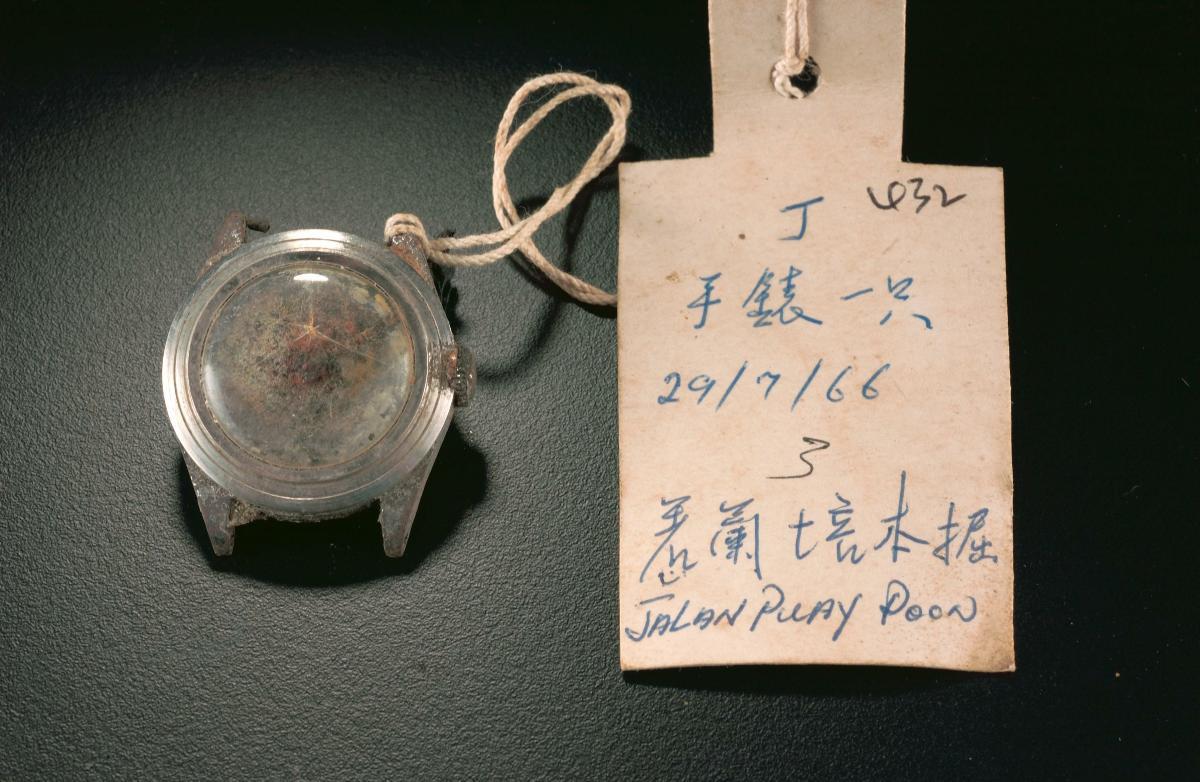 432
丁
手錶一只
29/7/66
3
惹蘭培本掘
JALAN PUAY POON